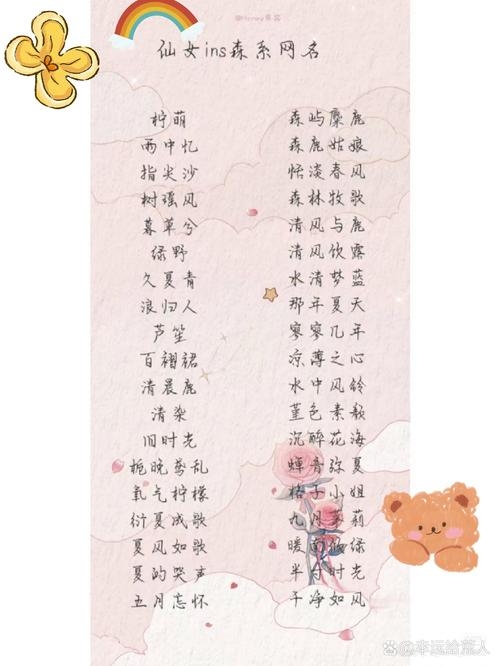 @Honey青栀
仙女ins森系网名
柠萌
雨中忆
指尖沙
树瑶风
暮草兮
绿野
久夏青
浪归人
芦笙
百褶裙
清晨鹿
清染
旧时光
栀晚鸢乱
氧气柠檬
衍夏成歌
夏风如歌
夏的哭声
五月忘怀
森屿麋鹿
森鹿姑娘
恬淡春风
森林牧歌
清风与鹿
清风饮露
水清梦蓝
那年夏天
寥寥几年
凉薄之心
水中风铃
堇色素颜
沉醉花海
蝉音弥夏
格子小姐
九月茉莉
暖南倾绿
半寸时光
干净如风
幸运给旅人